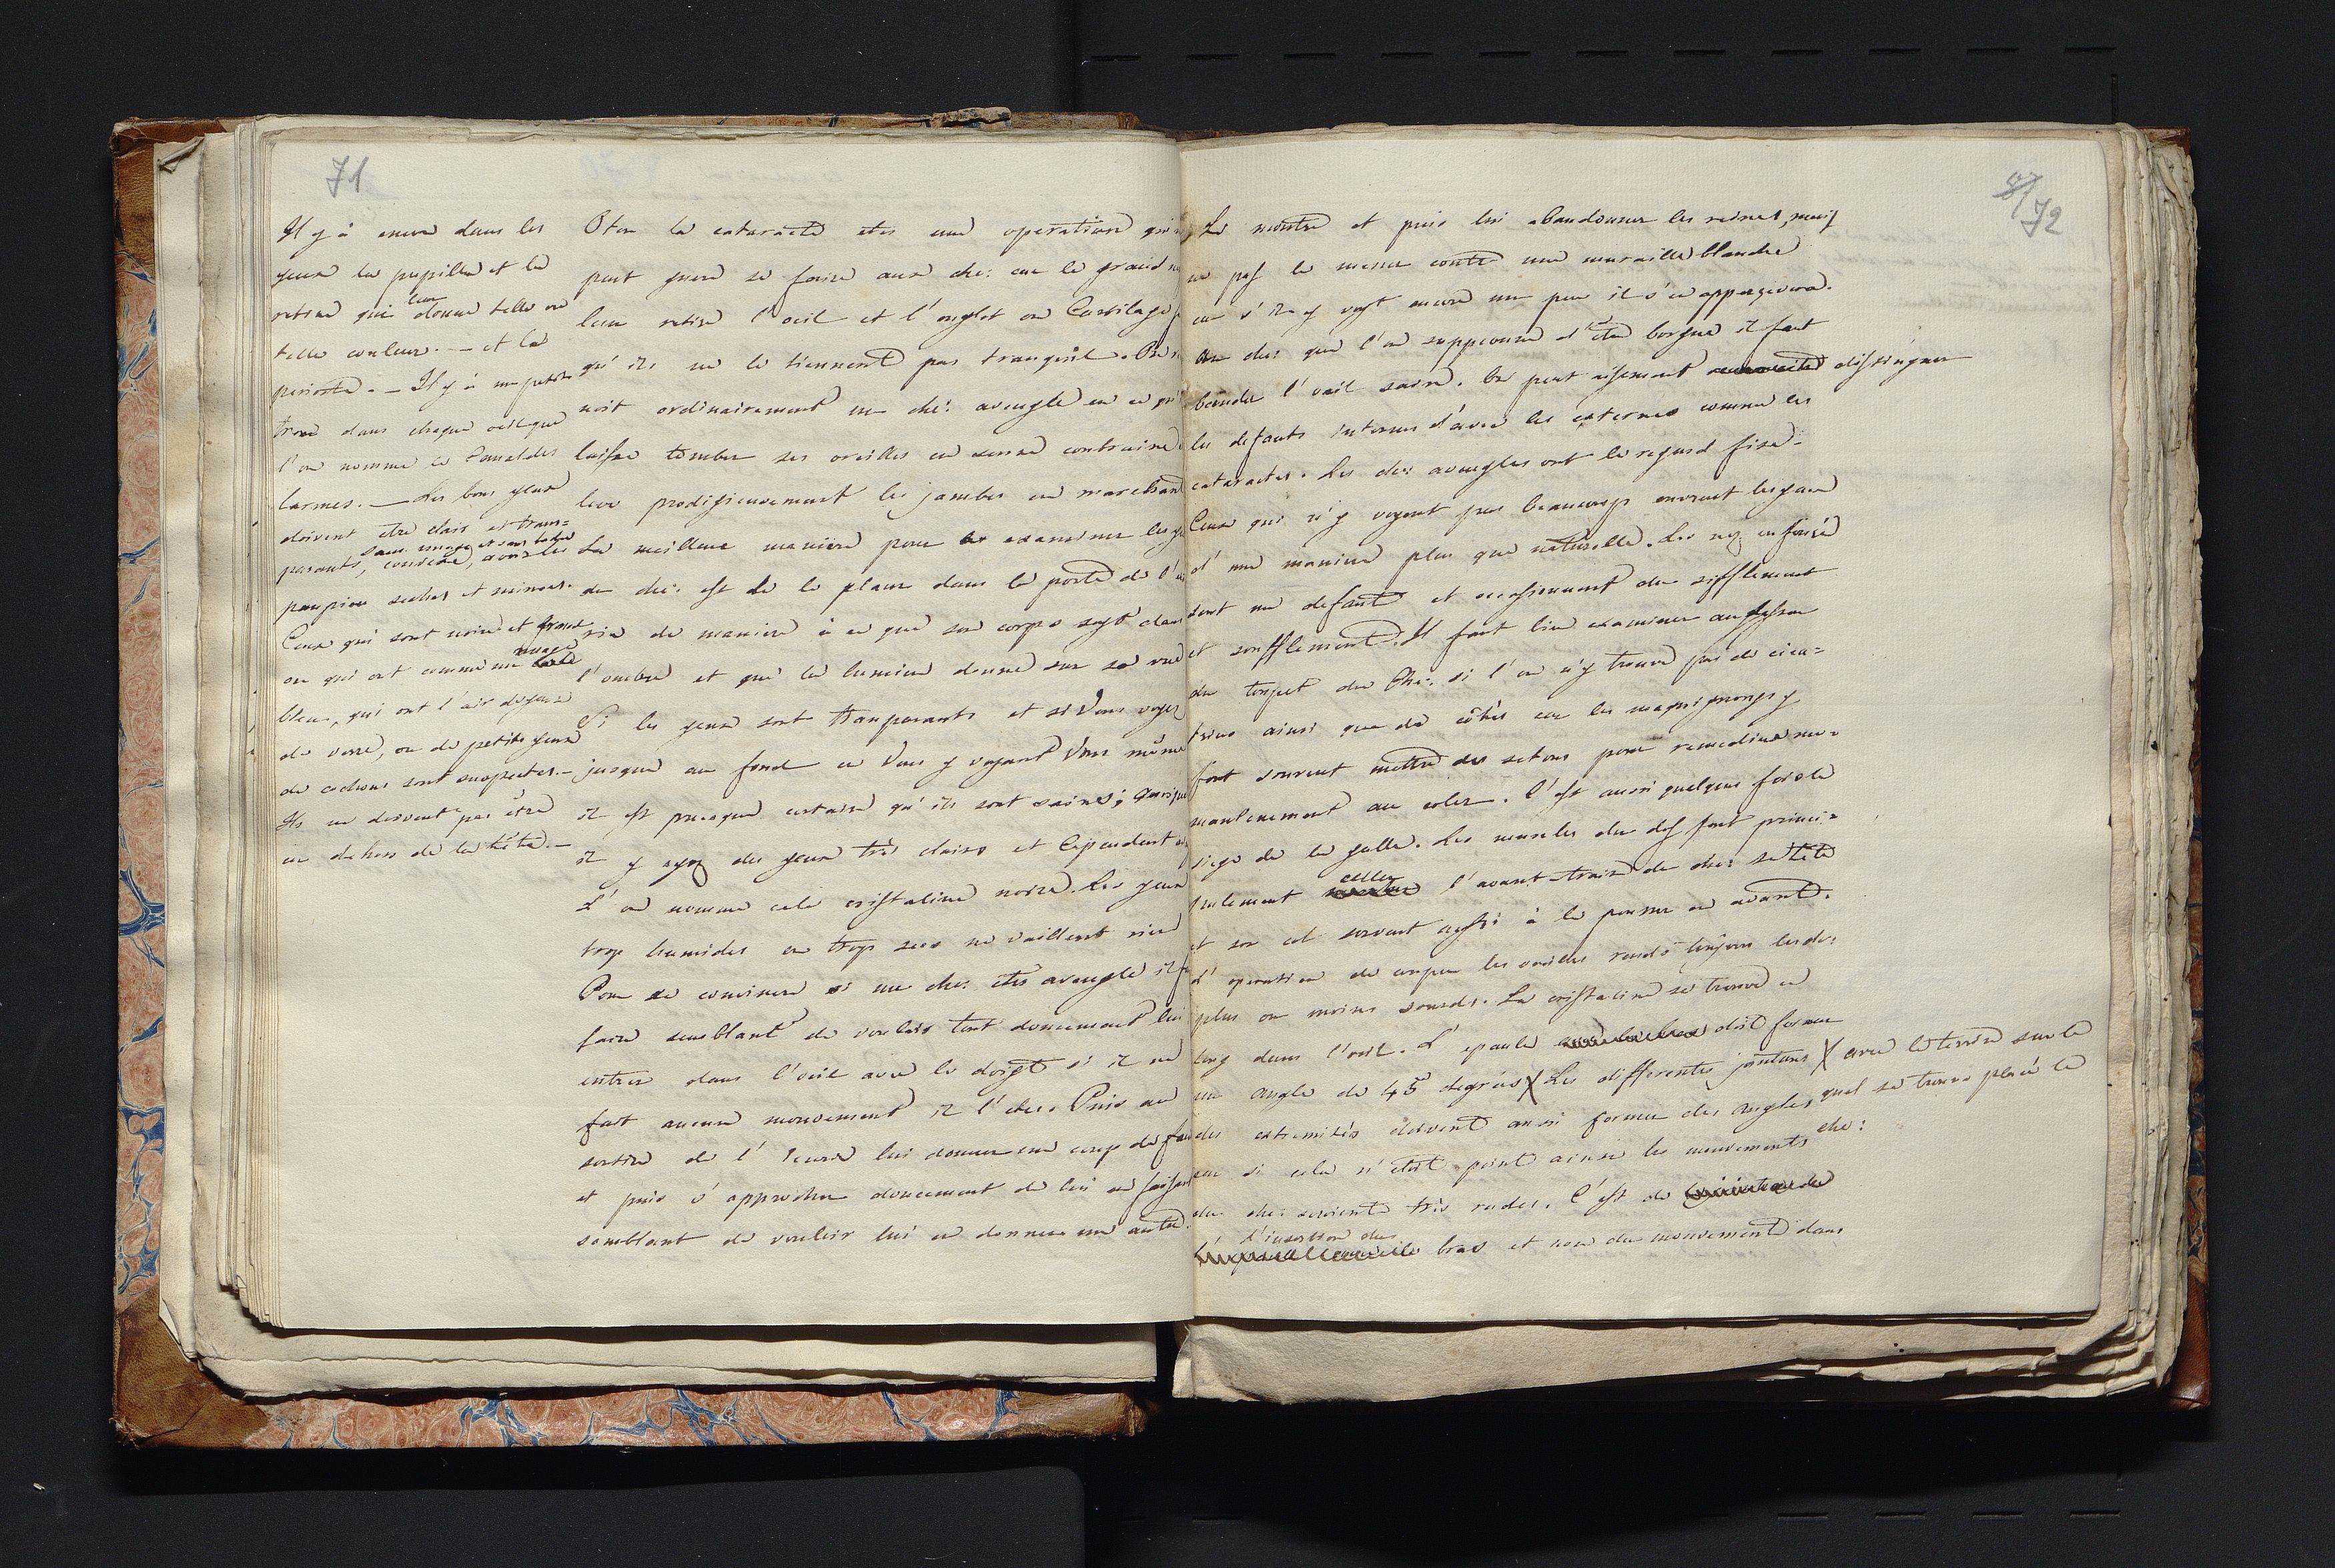 71
Il y à encore dans les
yeux la pupille et la
retine qui leur donne telle ou
telle couleur. — et la
. — Il y à un petit
trou dans chaque oeil que
l'on nomme le Canal des
larmes. — Les bons yeux
doivent être clair et trans=
parants, sans nuage et sans tache, avoir les
paupiere seches et minces.
Ceux qui sont noirs et
ou qui ont comme un nuage
bleu, qui ont l'air de yeux
de verre, ou de petits yeux
de cochons sont suspectes. —
Ils ne doivent pas être
en dehors de la tête. —
Oter la cataracte etes une operation qui
peut guere se faire aux che: car le grand
leur retire l'oeil et l'onglet ou Cartilage
qu'ils ne le tiennent pas tranquil. On
noit ordinairement un che: aveugle en ce qu'il
laisse tomber ses oreilles en sense contraire
leve prodigieusement les jambes en marchant
La meilleure maniere pour examiner les
du che: est de le placer dans la porte de l'
rie de maniere à ce que son corps soyt dans
l'ombre et que la lumiere donne sur sa vue
Si les yeux sont tranparants et si Vous voyez
jusque au fond en Vous y voyant Vous même
il est presque certaine qu'ils sont sains; quoique
il y ayez des yeux très clairs et Cependant
L'on nomme cela cristaline noire. Les yeux
trop humides ou trop secs ne vaillent rien
Pour se convincre si un che: etes aveugle il
faire semblant de vouloir tout doucement lui
entrer dans l'oeil avec le doigt si il ne
fait aucune mouvement il l'etes. Puis au
sortire de l'ecurie lui donner un coup de
et puis s'approcher doucement de lui en faisant
semblant de vouloir lui en donner un autre.
72
Le montre et puis lui abandonner les reines, mais
ne pas le mener contre une muraille blanche
car s'il y voyt encore un peu il s'en apperçevera.
Au che: que l'on suppconne d'être borgne il faut
bander l'oeil saine. On peut aisement distinguer
les defauts internes d'avec les externes comme les
cataractes. Les che: aveugles ont le regard fixe.
Ceux qui n'y voyent pas beaucoup ouvrent les yeux
d'une maniere plus que naturelle. Les nez enfoncé
sont un defaut et occasionnent du sifflement
et soufflement. Il faut bien examiner au dessus
du toupet du Che: si l'on n'y trouve pas de cica=
trice ainsi que de côtés car les maquignongs y
font souvent mettre des setons pour remedier mo=
mantenement au . C'est aussi quelques fois le
siege de la galle. Les muscles du dos font princi=
palement celler l'avant-train du che: sa tête
et son col servent aussi à le pousser en avant.
L'operation de couper les oreilles rends toujours les che:
plus ou moins sourds. La cristaline se trouve en
long dans l'oeil. L'epaule doit former
un angle de 45 degrées X Les differentes jointures X avec le terrin sur le
des extremités doivent aussi former des angles, quel se trouve placé le
car si cela n'etoit point ainsi les mouvements che:
du che: seroient très rudes. C'est de
l'insertion du
bras et non du mouvement dans